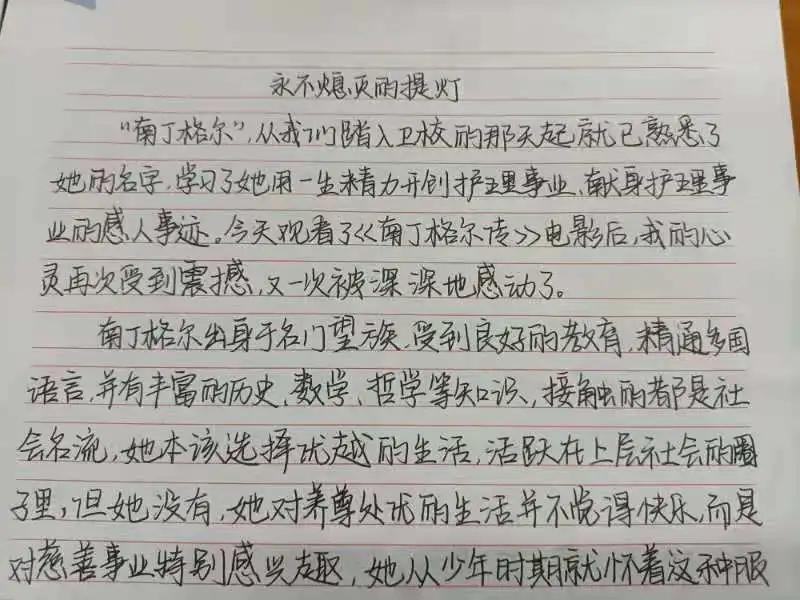 永不熄灭的提灯
“南丁格尔”,从我们踏入卫校的那天起就已熟悉了
她的名字,学习了她用一生精力开创护理事业、献身护理事
业的感人事迹。今天观看了《南丁格尔传》电影后,我的心
灵再次受到震撼,又一次被深深地感动了。
南丁格尔出身于名门望族,受到良好的教育,精通多国
语言,并有丰富的历史、数学、哲学等知识,接触的都是社
会名流,她本该选择优越的生活,活跃在上层社会的圈
子里,但她没有,她对养尊处优的生活并不觉得快乐,而是
对慈善事业特别感兴趣,她从少年时期就怀着这种服